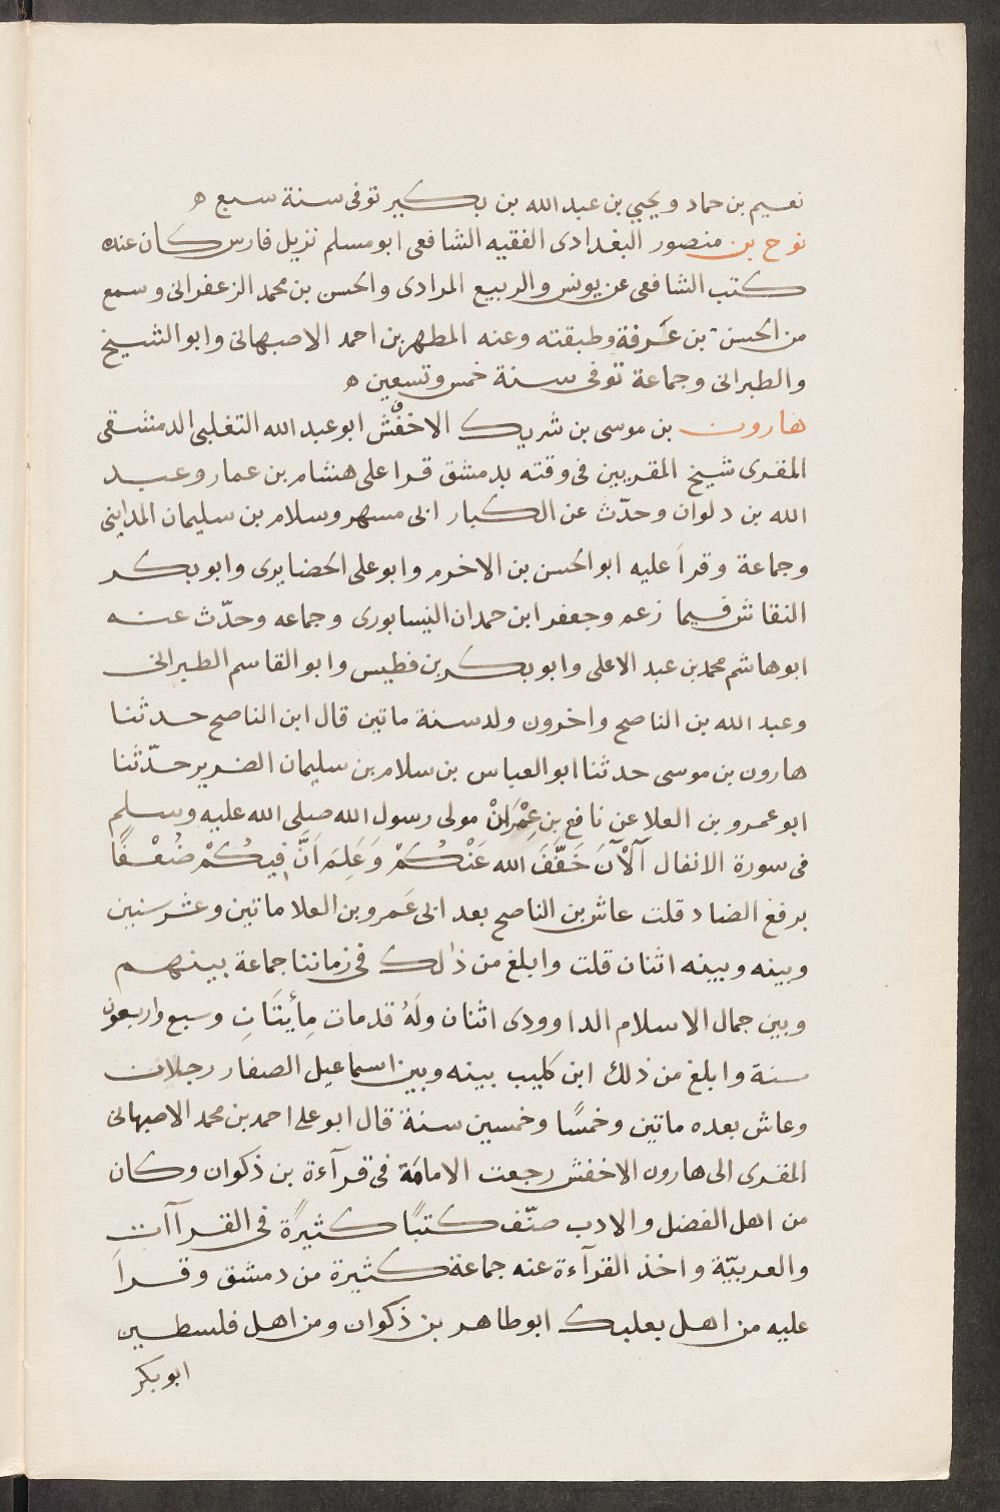 نعيم بن حماد ويحيي بن عبد الله بن بكير توفى سنة سبع ه
نوح بن منصور البغدادى الفقيه الشافعى ابو مسلم نزيل فارس كان عنده
كتب الشافعى عن يونس والربيع المرادى والحسن بن محمد الزعفرانى وسمع
من الحسن بن عَرفة وطبقته وعنه المطهر بن احمد الاصبهانى وابو الشيخ
والطبرانى وجماعة توفى سنة خمس وتسعين ه
هارون بن موسى بن شريك الاخفش ابو عبد الله التغلبى الدمشقى
المقرى شيخ المقريين فى وقته بدمشق قرا على هشام بن عمار وعبد
الله بن دلوان وحدّث عن الكبار ابى مسهر وسلام بن سليمان المداينى
وجماعة وقرأ عليه ابو الحسن بن الاخرم وابو على الحضايرى وابو بكر
النقاش فيما زعم وجعفر ابن حمدان النيسابورى وجماعه وحدّث عنه
ابو هاشم محمد بن عبد الاعلى وابو بكر بن فطيس وابو القاسم الطبرانى
وعبد الله بن الناصح واخرون ولد سنة ماتين قال ابن الناصح حدثنا
هارون بن موسى حدثنا ابو العباس بن سلام بن سليمان الضرير حدّثنا
ابو عمرو بن العلا عن نافع بن عِمْرَانْ مولى رسول الله صلى الله عليه وسلم
فى سورة الانفال آلْآنَ خَفَّفَ الله عَنْكُمْ وَعَلِمَ اَنَّ فِيكُمْ ضُعْفًا
برفع الضاد قلت عاش بن الناصح بعد ابى عَمرو بن العلا ماتين وعشر سنين
وبينه وبينه اثنان قلت وابلغ من ذالك فى زماننا جماعة بينهم
وبين جمال الاسلام الداوودى اثنان وَلَهُ قد مات مِأيتَانِ وسبع واربعون
سنة وابلغ من ذلك ابن كليب بينه وبين اسماعيل الصفار رجلان
وعاش بعده ماتين وخمسًا وخمسين سنة قال ابو على احمد بن محمد الاصبهانى
المقرى الى هارون الاخفش رجعت الامامَة فى قرآءة بن ذكوان وكان
من اهل الفضل والادب صنّف كتبًا كثيرًة فى القراآت
والعربيّة واخذ القرآءة عنه جماعة كثيرة من دمشق وقرأ
عليه من اهل بعلبك ابو طاهر بن ذكوان ومن اهل فلسطين
ابو بكر